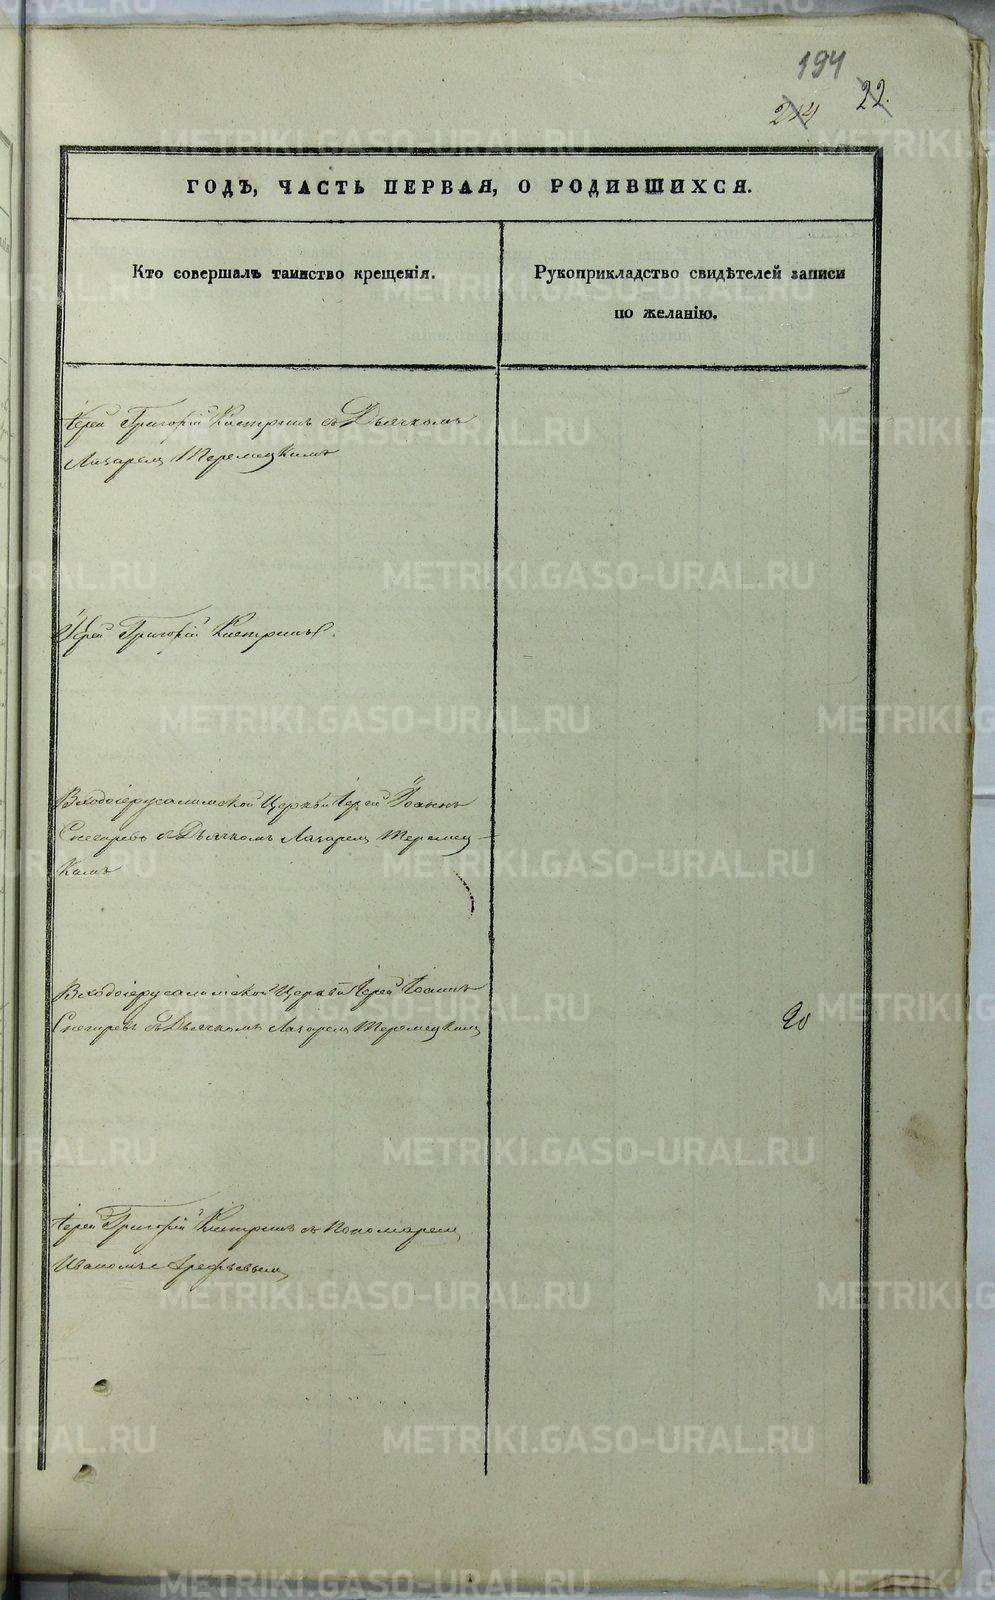 194
214 22.
ГОДЪ, ЧАСТЬ ПЕРВАЯ, О РОДИВШИХСЯ.
Кто совершалъ таинство крещенія.
Рукоприкладство свидѣтелей записи
по желанію.
Іерей Григорій съ Дьячкомъ
Лазаремъ Теремецкимъ
Іерей Григорій
Входоіерусалимской Церкви Іерей Іоаннъ
Снегиревъ съ Дьячкомъ Лазаремъ Теремец-
кимъ
Входоіерусалимской Церкви Іерей Іоаннъ
Снегиревъ съ Дьячкомъ Лазаремъ Теремецкимъ
20
Іерей Григорій съ Пономаремъ
Иваномъ Арефьевымъ
METRIKI.GASO-URAL.RU